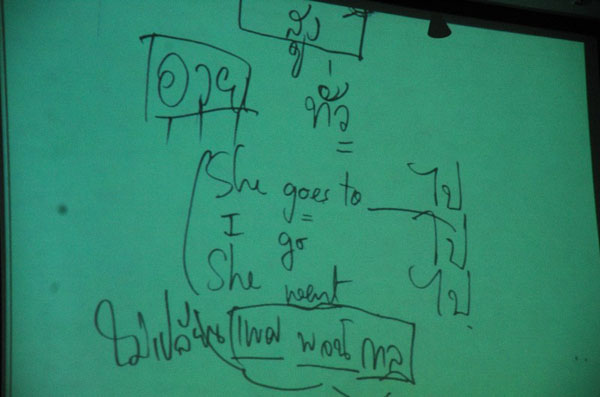 สูง
She goes to ไป
I go ไป
She went ไป
ไม่เปลี่ยน เพศ พจน์ กาล